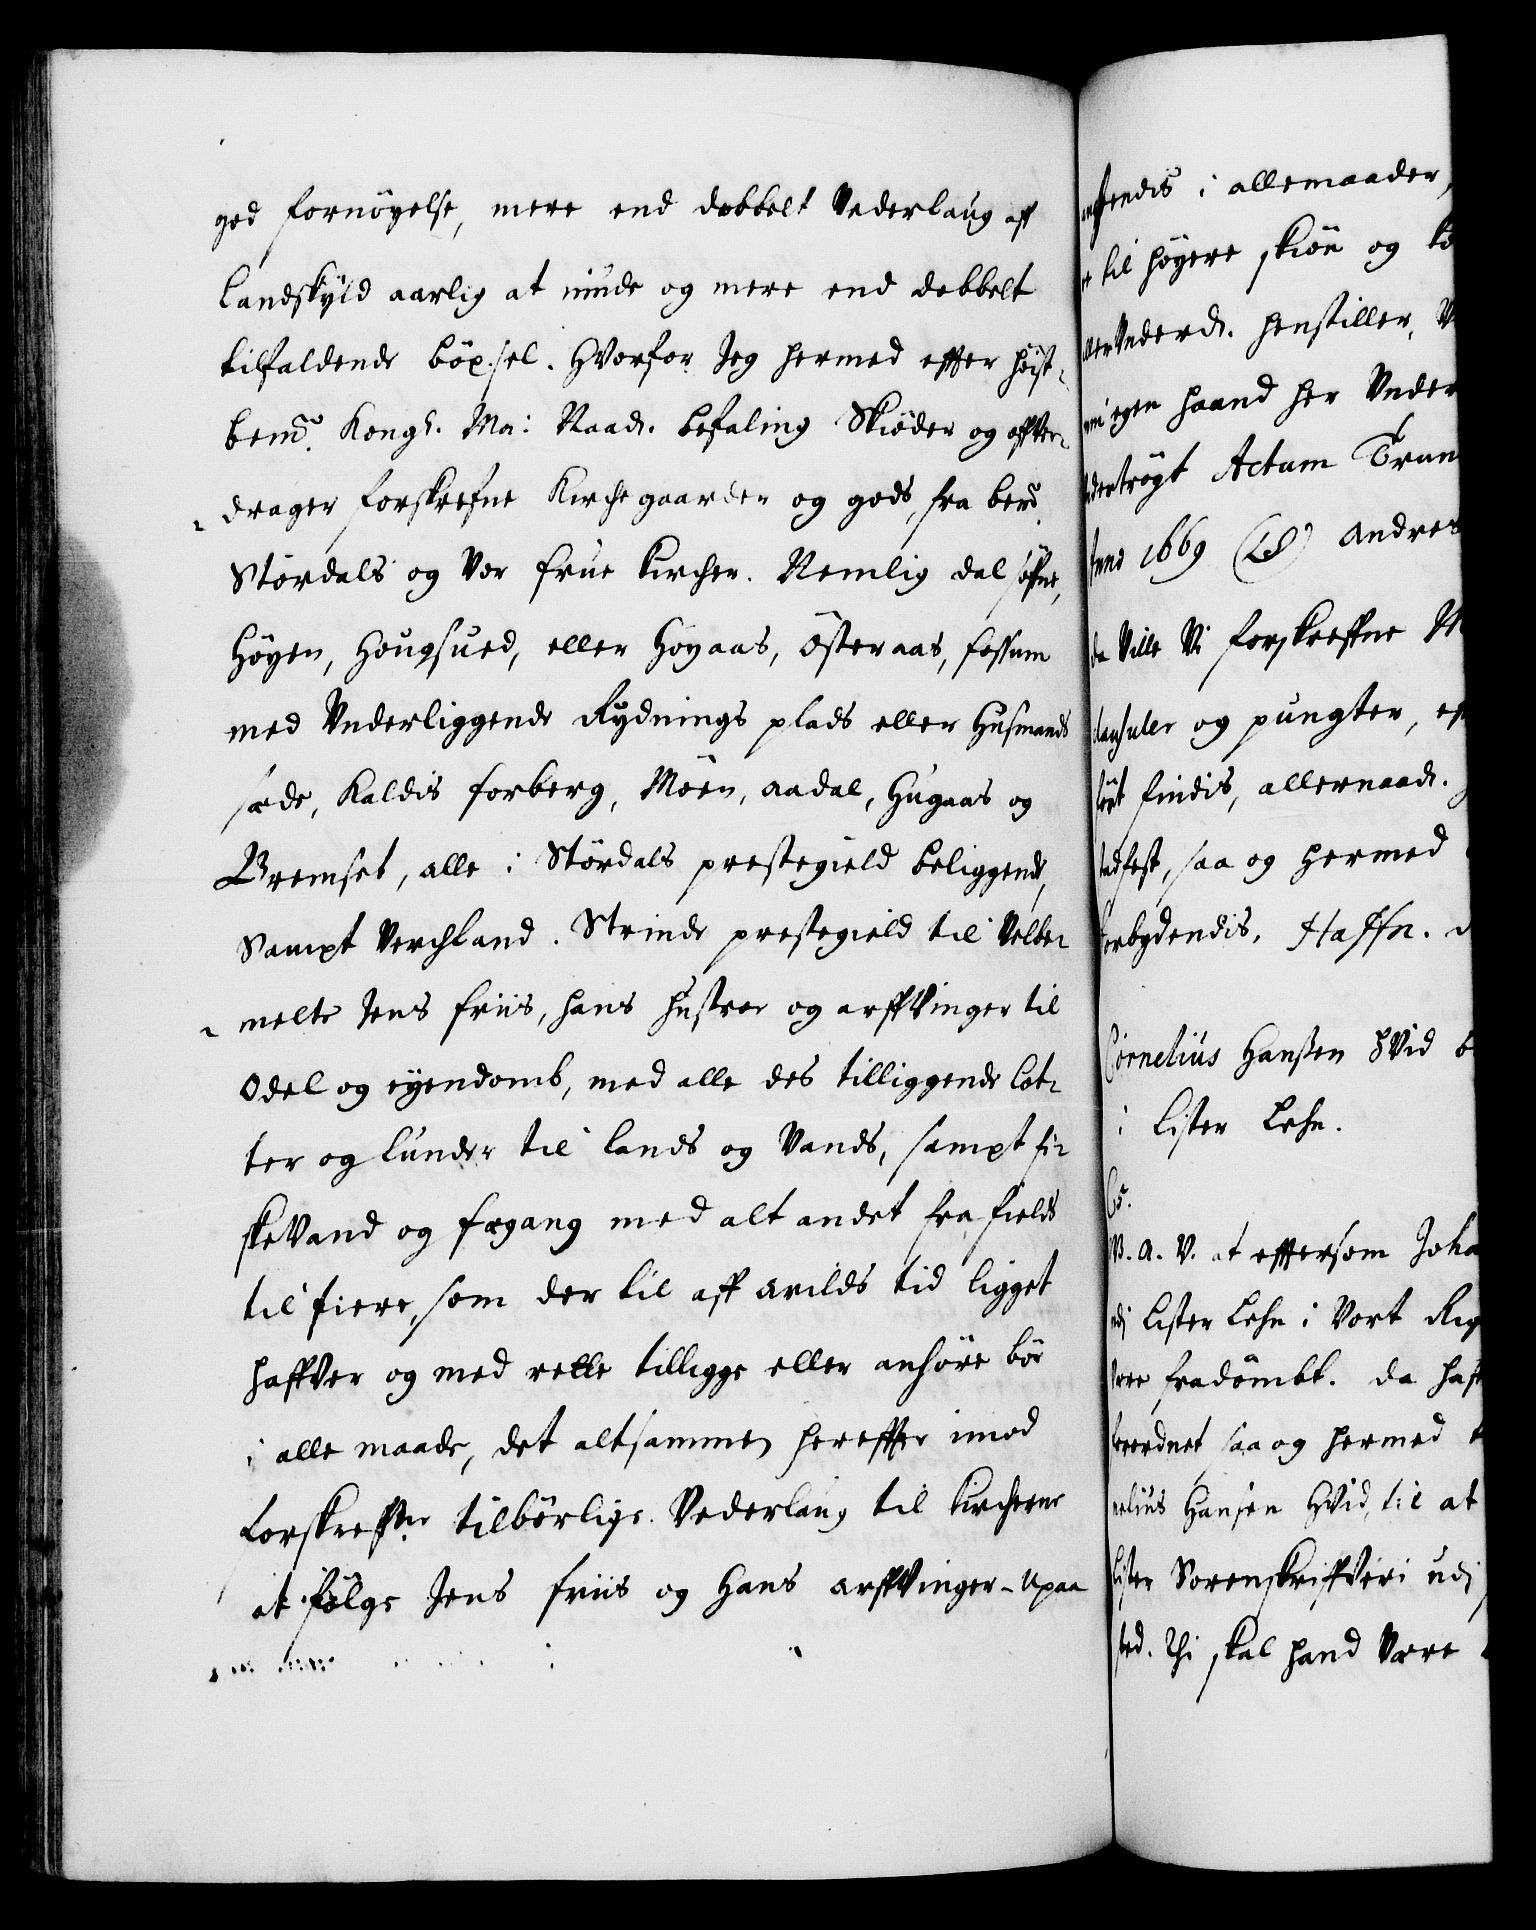 god fornöyelse, mere end dobbelt Vederlaug aff
Landskyld aarlig at niude og mere end dobbelt
tilfaldende böxsel. Hvorfor Jeg hermed effter höist-
bemᵗᵉ. Kongl. Ma: Naad. befaling Skiöder og affVer-
drager forskrefne Kirchegaarder og gods, fra bemᵗᵉ
Stördals og Vor frue Kircher. Nemlig dal söfne,
Höyen, Hougsued, eller Hoyaas, Österaas, fossum
med Vnderliggende Rydnings plads eller Husmands
sæde, Kaldis forberg, Möen, aadal, Hugaas og
Bremset, alle i Stördals prestegield beliggende,
Sampt Verchland. Strinde prestegield til Velbe-
melte Jens friis, hans hustroe og arffVinger til
Odel og eyendomb, med alle des tilliggende lot-
ter og lunder til lands og Vands, sampt fi-
skeVand og fægang med alt andet fra field
til fiere, som der til aff arilds tid ligget
haffVer og med rette tilligge eller anhöre bör
i alle maade, det altsammen hereffter imod
forskreffne tilbörlige Vederlaug til Kircherne
at fölge Jens friis og Hans arffVinger - Upaa
endis i allemaader,
til höyere skiön og
Vnderd. henstiller,
egen haand her Vnder
trögt Actum Tran
Anno 1669 (LS) Andreas
da Ville Vi forskreffne
clausuler og pungter,
findis, allernaad.
stadfest, saa og hermed
forbydendis, Haffn. d
Cornelius Hansen HVid
i Lister Lehn.
C5.
V. A. V. at efftersom Joha
udj Lister Lehn i Vort Rig
være fradömbt. da haf
forordnet saa og hermed
nelius Hansen HVid, til at
Lister SorenskriffVeri udj
sted. Thi skal hand Være